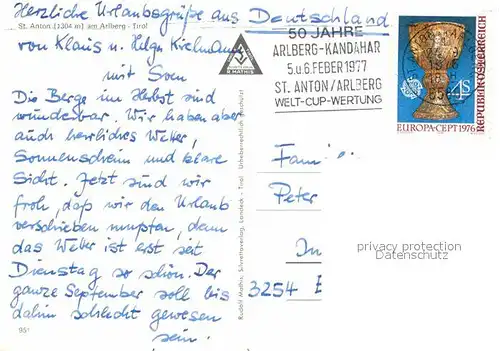 Herzliche Urlaubsgrüße aus Deutschland
St. Anton [1304 m] am Arlberg - Tirol
von Klaus u. Helga
mit Sven
Die Berge im Herbst sind
wunderbar. Wir haben aber
auch herrliches Wetter,
Sonnenschein und klare
Sicht. Jetzt sind wir
froh, daß wir den Urlaub
verschieben mußten, denn
das Wetter ist erst seit
Dienstag so schön. Der
ganze September soll bis
dahin schlecht gewesen
sein.
951
R MATHIS
Rudolf Mathis, Silvrettaverlag, Landeck - Tirol Urheberrechtlich geschützt
50 JAHRE
ARLBERG-KANDAHAR
5.u.6.FEBER 1977
ST. ANTON/ARLBERG
WELT-CUP-WERTUNG
4S
REPUBLIK ÖSTERREICH
EUROPA-CEPT 1976
Fami
Peter
In
3254 E
privacy protection
Datenschutz